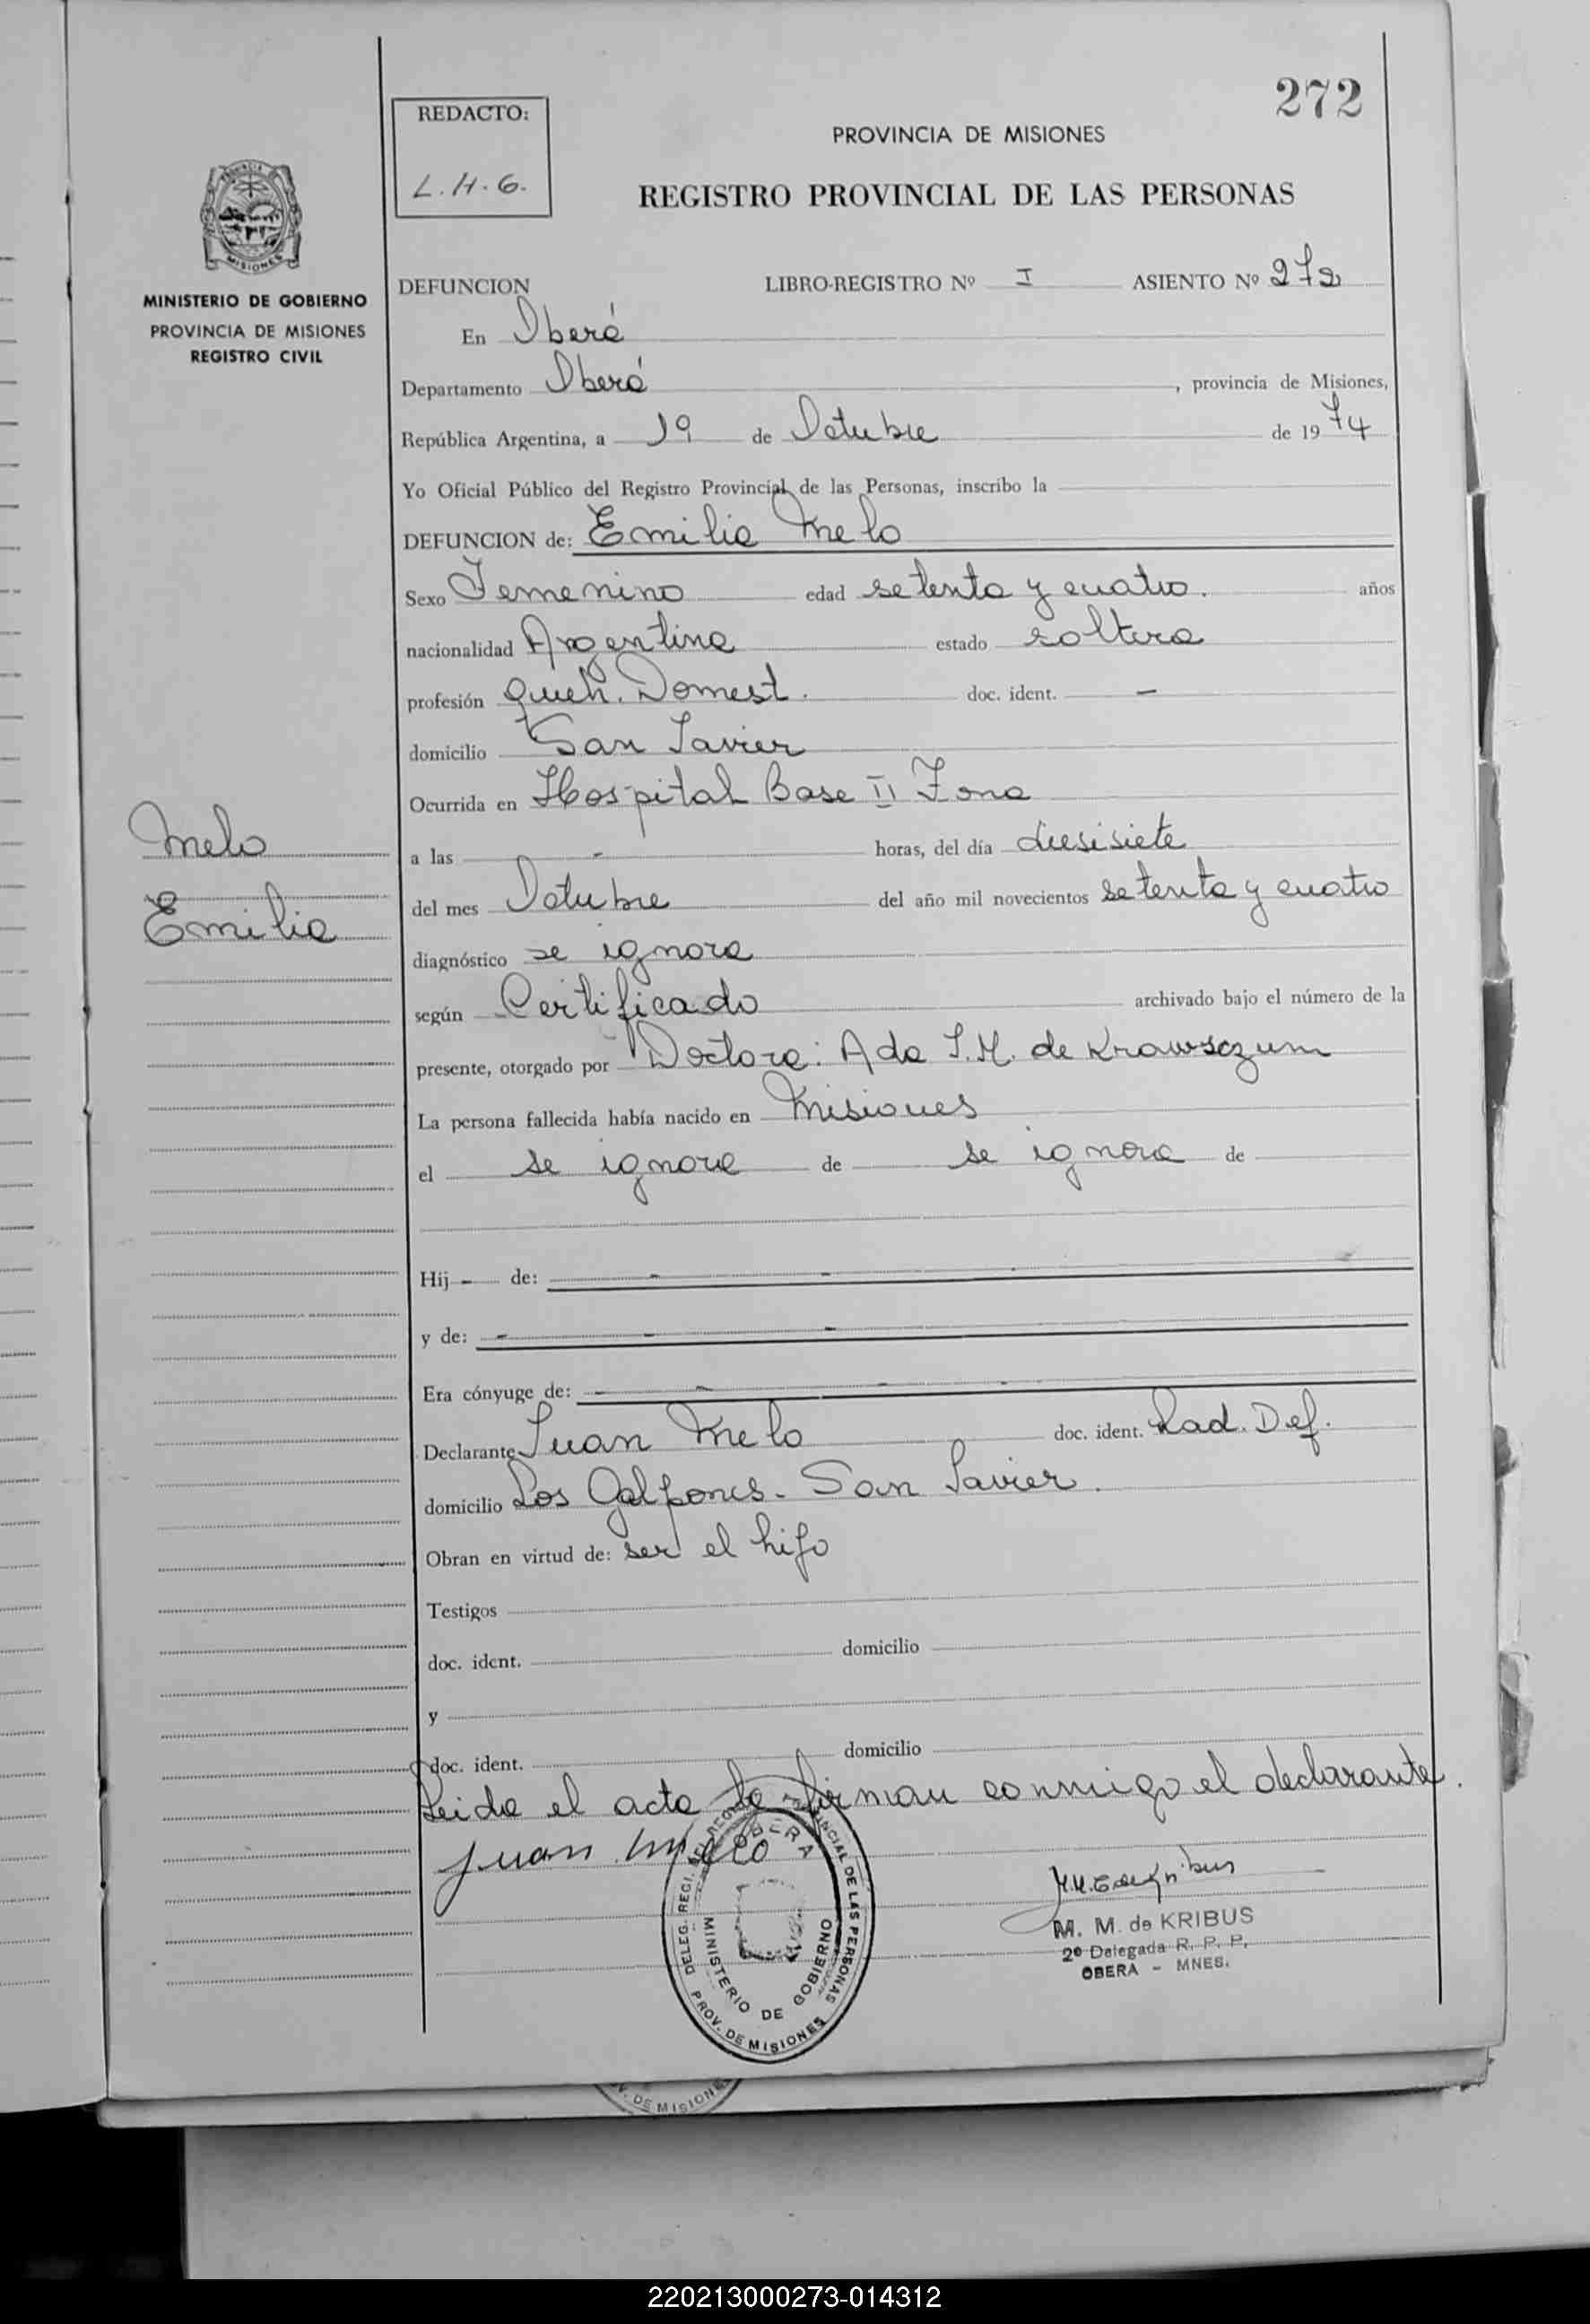 272
REDACTO:
L.H.G.
PROVINCIA DE MISIONES
REGISTRO PROVINCIAL DE LAS PERSONAS
MISIONES
MINISTERIO DE GOBIERNO
PROVINCIA DE MISIONES
REGISTRO CIVIL
DEFUNCION LIBRO-REGISTRO Nº I ASIENTO Nº 272
En Oberá
Departamento Oberá, provincia de Misiones,
República Argentina, a 19 de Octubre de 1974
Yo Oficial Público del Registro Provincial de las Personas, inscribo la
DEFUNCION de: Emilia Melo
Sexo Femenino edad setenta y cuatro. años
nacionalidad Argentina estado soltera
profesión Queh. Domest. doc. ident. -
domicilio San Javier
Ocurrida en Hospital Base II Zona
Melo
a las - horas, del día diesisiete
Emilia
del mes Octubre del año mil novecientos setenta y cuatro
diagnóstico se ignora
según Certificado archivado bajo el número de la
presente, otorgado por Doctora: Ada de Krawsczum
La persona fallecida había nacido en Misiones
el se ignora de se ignora de
Hij - de: - -
y de: - - -
Era cónyuge de: - - - -
Declarante Juan Melo doc. ident. Def.
domicilio Los Galpones - San Javier.
Obran en virtud de: ser el hijo
Testigos
doc. ident. domicilio
y
doc. ident. domicilio
Leida el acta la firman conmigo el declarante.
Juan Melo
DELEG. REGI. PROVINCIAL DE LAS PERSONAS
OBERA
MINISTERIO DE GOBIERNO
PROV. DE MISIONES
M. M. de KRIBUS
2º Delegada R. P. P.
OBERA - MNES.
V. DE MISIONE
220213000273-014312